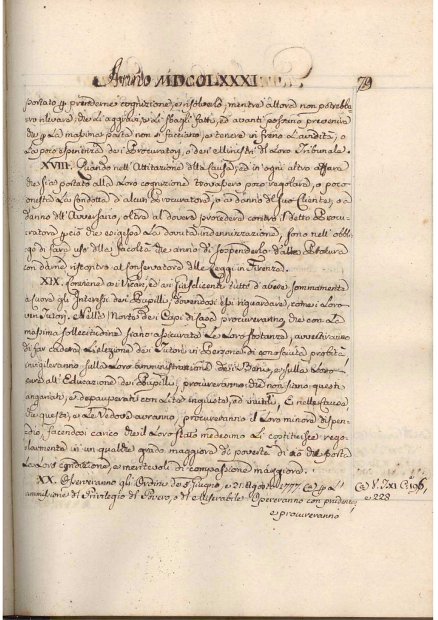 Anno MDCCLXXXI 79
portato p prenderne cognizione, e risolverlo, mentre allora non potrebbe-
ro rilevare, che gli aggravi, e gli sbagli fatti, ed avanti possono prevenire
che p la massima parte non si facciano, e tenere in freno l'avidità, o
la poco esperienza dei Procuratori, o dei Ministri del loro Tribunale.
XVIII. Quando nell'Attitazione delle Cause, ed in ogni altro affare
che sia portato alla loro cognizione trovassero poco regolare, o poco
onesta la condotta d'alcun Procuratore, o a danno del suo Cliente, o a
danno dell'Avversario, oltre al dovere procedere contro il detto Procu-
ratore p ciò che esigesse la dovuta indennizzazione, sono nell'obbli-
go di fare uso della facoltà che anno di sospenderlo dalla Procura
con darne riscontro al Conservatore delle Leggi in Firenze.
XIX. Conviene ai Vicari, ed ai Giusdicenti tutti d'avere sommamente
a cuore gli Interessi dei Pupilli, dovendosi essi riguardare, come i loro
veri Tutori. Nella Morte dei Capi di Casa procureranno, che con la
massima sollecitudine siano assicurate le loro sostanze, avvertiranno
di far cadere l'elezione dei Tutori in Persone di conosciuta probità,
invigileranno sulla loro amministrazione dei Beni, e sulla
cura all'Educazione dei Pupilli; procureranno che non siano questi
angariati, e depauperati con Lite ingiuste, ed inutili, E nelle Cause
che questi, e le Vedove avranno, procureranno il loro minore dispen-
dio, facendosi carico che il loro stato medesimo li costituisce rego-
larmente in un qualche grado maggiore di povertà di ciò che porta
la loro condizione, e meritevoli di compassione maggiore.
XX. Osserveranno gli Ordini de 5. Giugno, e 21. Agosto 1777. (a) p l'
ammissione del Privilegio del Povero, o del Miserabile. Opereranno con prudenza,
e procureranno
(a) V. T. XI C. 196,
e 228